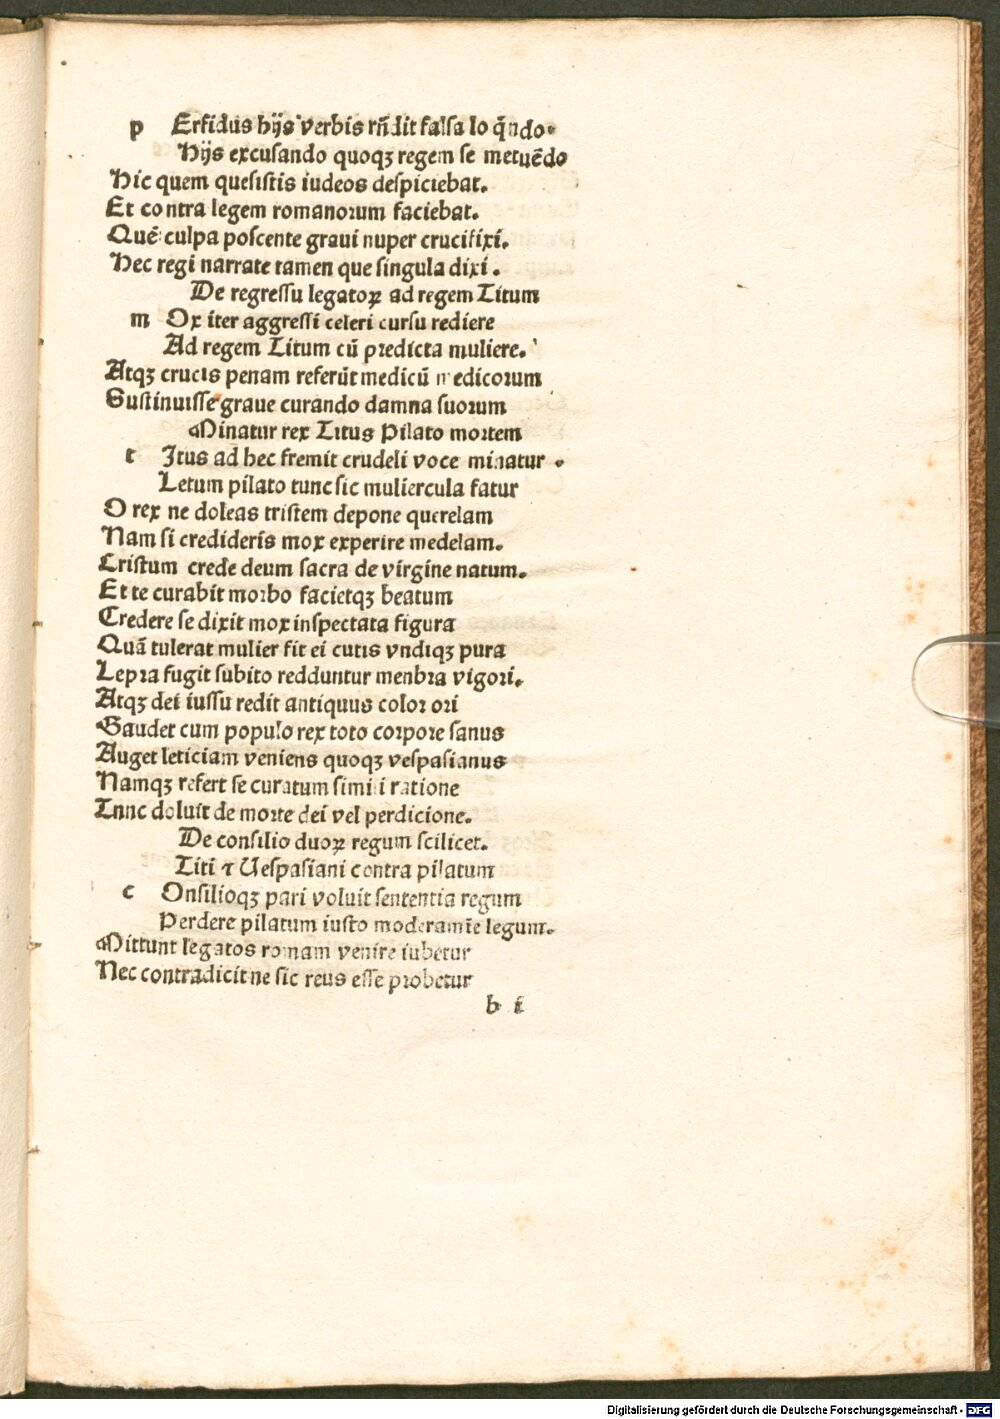 p Erfidus hijs verbis rn̄dit falsa lo q̄ndo.
Hijs excusando quoqꝫ regem se metuēdo
Hic quem quesistis iudeos despiciebat.
Et contra legem romanorum faciebat.
Quē culpa poscente graui nuper crucifixi.
Hec regi narrate tamen que singula dixi.
De regressu legatoꝝ ad regem Titum
m Ox iter aggressi celeri cursu rediere
Ad regem Titum cū predicta muliere.
Atqꝫ crucis penam referūt medicū medicorum
Sustinuisse graue curando damna suorum
Minatur rex Titus Pilato mortem
t Itus ad hec fremit crudeli voce minatur.
Letum pilato tunc sic muliercula fatur
O rex ne doleas tristem depone querelam
Nam si credideris mox experire medelam.
Cristum crede deum sacra de virgine natum.
Et te curabit morbo facietqꝫ beatum
Credere se dixit mox inspectata figura
Quā tulerat mulier fit ei cutis vndiqꝫ pura
Lepra fugit subito redduntur menbra vigori.
Atqꝫ dei iussu redit antiquus color ori
Gaudet cum populo rex toto corpore sanus
Auget leticiam veniens quoqꝫ vespasianus
Namqꝫ refert se curatum simili ratione
Tunc doluit de morte dei vel perdicione.
De consilio duoꝝ regum scilicet.
Titi ⁊ Uespasiani contra pilatum
c Onsilioqꝫ pari voluit sententia regum
Perdere pilatum iusto moderamīe legum.
Mittunt legatos romam venire iubetur
Nec contradicit ne sic reus esse probetur
b i
Digitalisierung gefördert durch die Deutsche Forschungsgemeinschaft - DFG